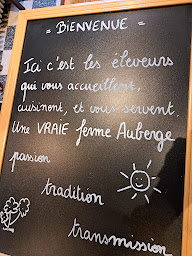 = BIENVENUE =
Ici c'est les éleveurs
qui vous accueillent,
cuisinent, et vous servent.
Une VRAIE ferme Auberge
passion
tradition
transmission